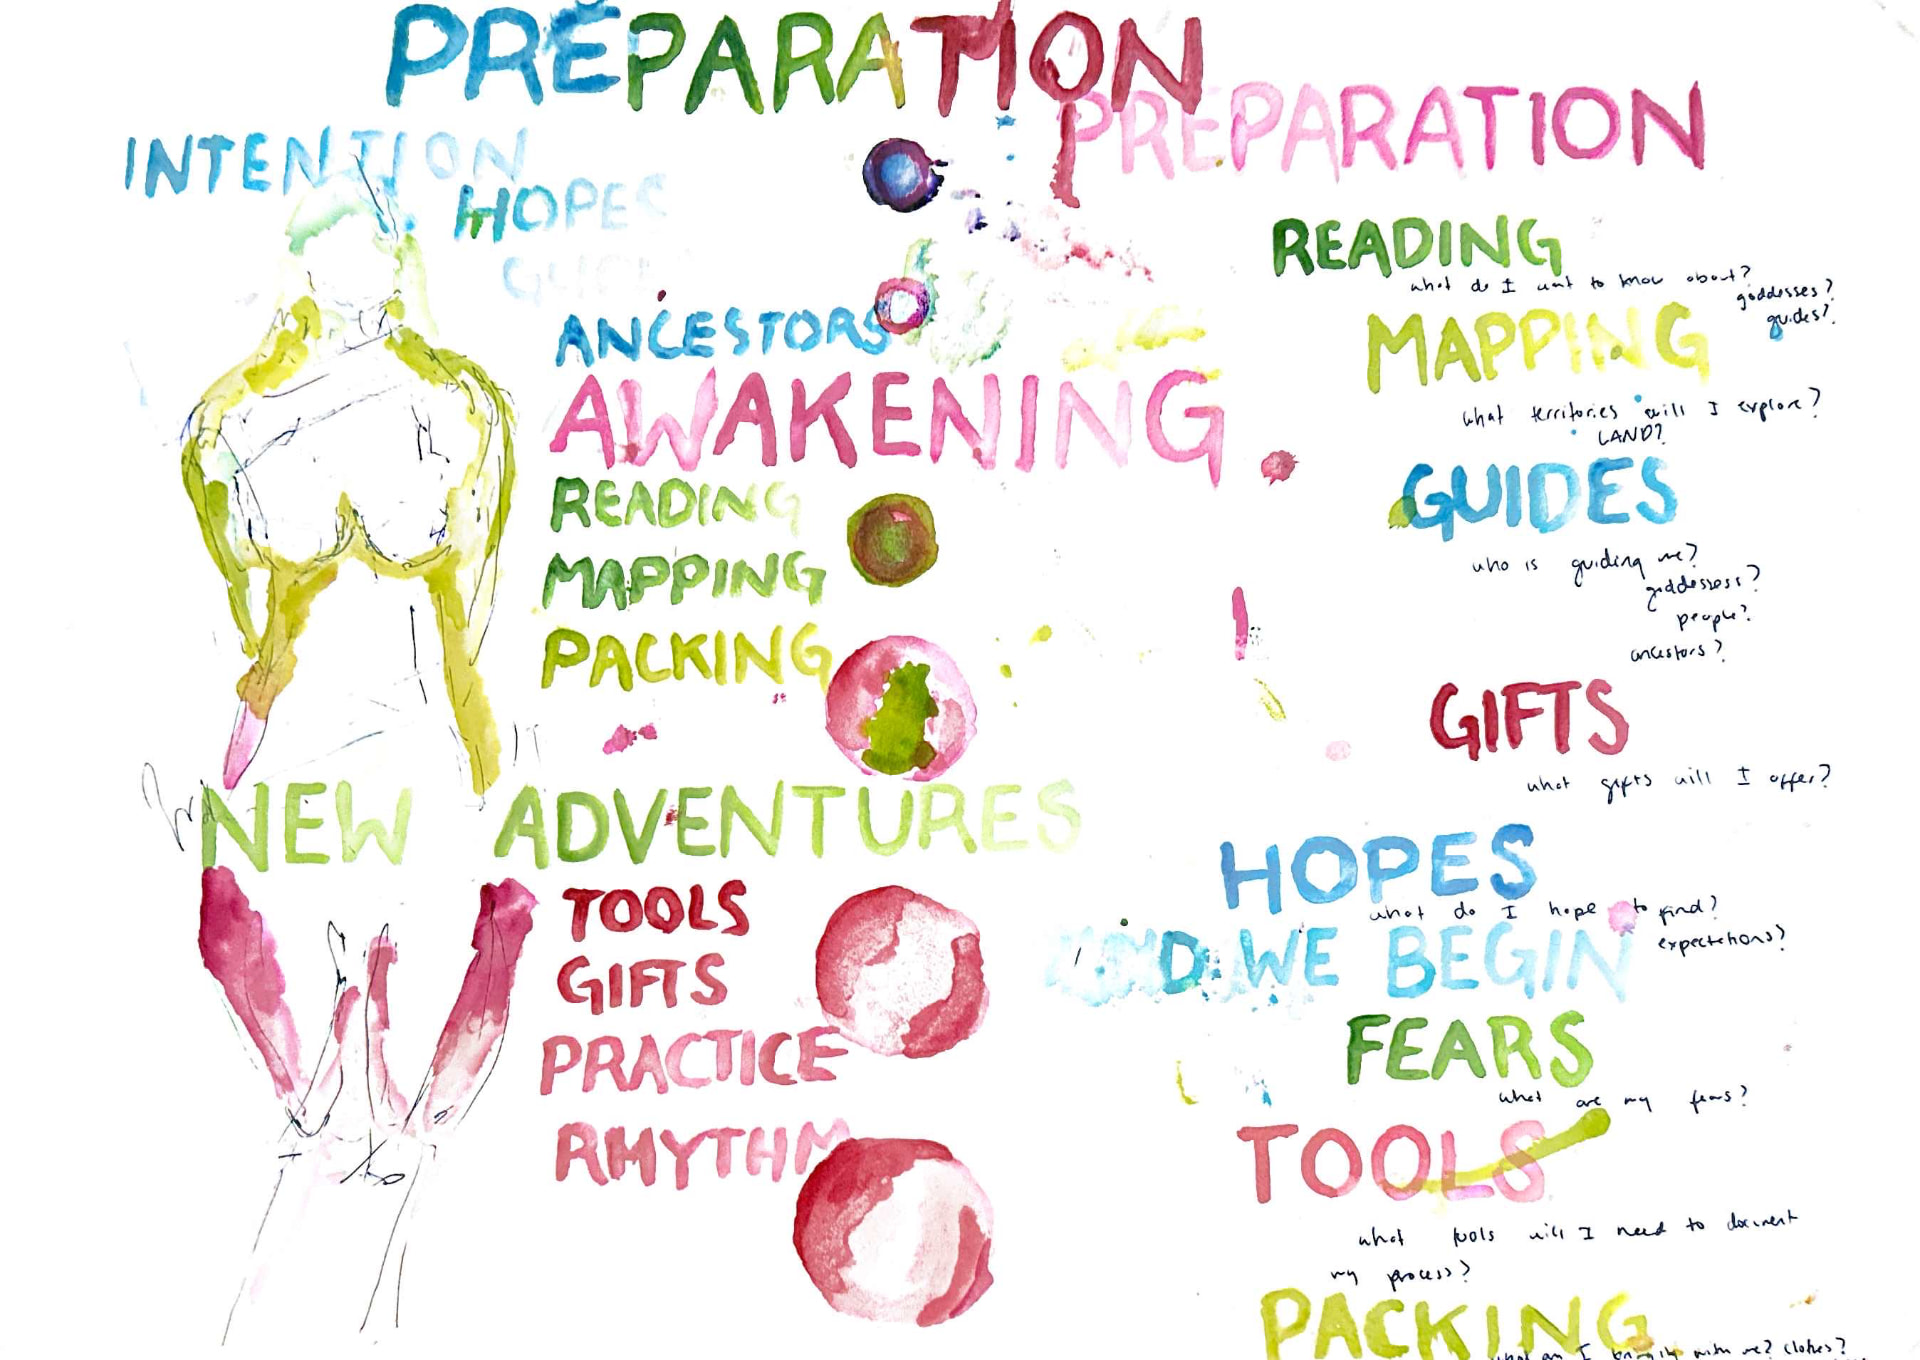 PREPARATION
PREPARATION
INTENTION
HOPES
ANCESTORS
AWAKENING
READING
MAPPING
PACKING
NEW ADVENTURES
TOOLS
GIFTS
PRACTICE
RHYTHM
READING
what do I want to know about?
goddesses?
guides?
MAPPING
what territories will I explore?
LAND?
GUIDES
who is guiding me?
goddessess?
people?
ancestors?
GIFTS
what gifts will I offer?
HOPES
what do I hope to find?
expectations?
WE BEGIN
FEARS
what are my fears?
TOOLS
what tools will I need to document
my process?
PACKING
what am I with me? clothes?